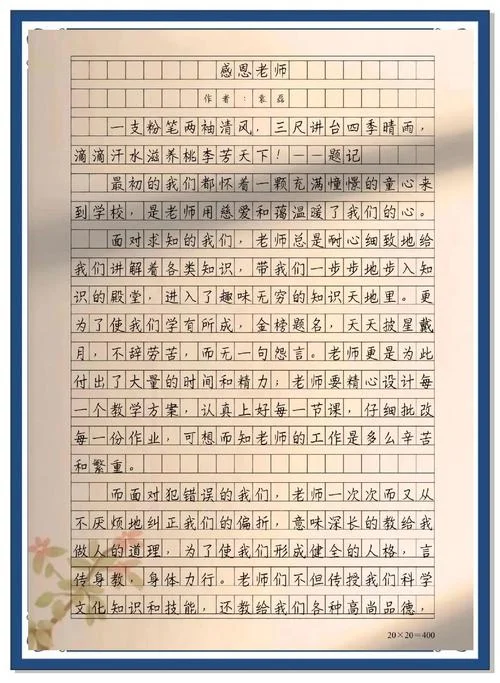 感恩老师
作者：袁磊
一支粉笔两袖清风，三尺讲台四季晴雨，
滴滴汗水滋养桃李芳天下！——题记
最初的我们都怀着一颗充满憧憬的童心来
到学校，是老师用慈爱和蔼温暖了我们的心。
面对求知的我们，老师总是耐心细致地给
我们讲解着各类知识，带我们一步步地步入知
识的殿堂，进入了趣味无穷的知识天地里。更
为了使我们学有所成，金榜题名，天天披星戴
月，不辞劳苦，而无一句怨言。老师更是为此
付出了大量的时间和精力；老师要精心设计每
一个教学方案，认真上好每一节课，仔细批改
每一份作业，可想而知老师的工作是多么辛苦
和繁重。
而面对犯错误的我们，老师一次次而又从
不厌烦地纠正我们的偏折，意味深长的教给我
做人的道理，为了使我们形成健全的人格，言
传身教，身体力行。老师们不但传授我们科学
文化知识和技能，还教给我们各种高尚品德，
20×20=400